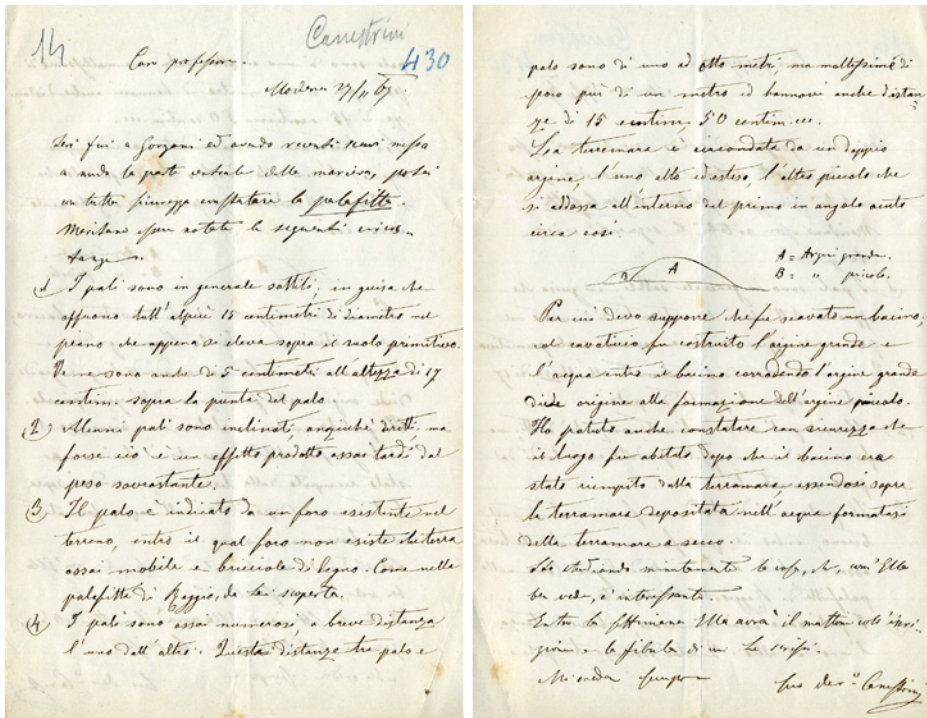 14
Canestrini
430
Caro professore.
Modena 27/11 67.
Ieri fui a Gorzano ed avendo recenti scavi messa
a nudo la parte centrale della mariera, potei
con tutta sicurezza constatare la palafitta.
Meritano esser notate le seguenti circos-
tanze.
1) I pali sono in generale sottili, in guisa che
offrono tutt'al più 15 centimetri di diametro nel
piano che appena si eleva sopra il suolo primitivo.
Ve ne sono anche di 5 centimetri all'altezza di 17
centim. sopra la punta del palo.
2) Alcuni pali sono inclinati, anzichè diritti, ma
forse ciò è un effetto prodotto assai tardi dal
peso sovrastante.
3) Il palo è indicato da un foro esistente nel
terreno, entro il qual foro non esiste che terra
assai mobile e bricciole di legno. Come nella
palafitta di Reggio, da Lei scoperta.
4) I pali sono assai numerosi, a breve distanza
l'uno dall'altro. Questa distanze tra palo e
palo sono di uno ad otto metri, ma moltissime di
poco più di un metro ed hannovi anche distan
ze di 15 centim, 50 centim. ecc.
La terramara è circondata da un doppio
argine, l'uno alto ed esteso, l'altro piccolo che
si addossa all'interno del primo in angolo acuto
circa così.
B A
A = Argine grande.
B = " piccolo.
Per cui devo supporre che fu scavato un bacino,
col cavaticcio fu costruito l'argine grande e
l'acqua entro il bacino corrodendo l'argine grande
diede origine alla formazione dell'argine piccolo.
Ho potuto anche constatare con sicurezza che
il luogo fu abitato dopo che il bacino era
stato riempito dalla terramara, essendosi sopra
la terramara depositata nell'acqua formatasi
della terramara a secco.
Sto studiando minutamente la cosa, che, com'Ella
ben vede, è interessante.
Entro la settimana Ella avrà il mattone coll'inscri-
zione e la fibula di cui Le scrissi.
Mi creda sempre
Suo dev.º Canestrini